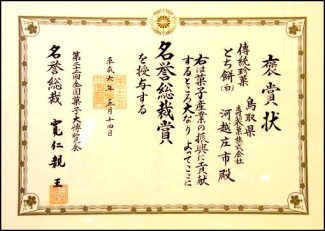 褒賞状
鳥取県
寿製菓株式会社
河越庄市殿
傳統珍菓
とち餅(白)
右は菓子産業の振興に貢献
するところ大なり よってここに
名誉総裁賞
を授与する
平成六年五月十四日
第二十二回全国菓子大博覧会
名誉総裁 寛仁親王